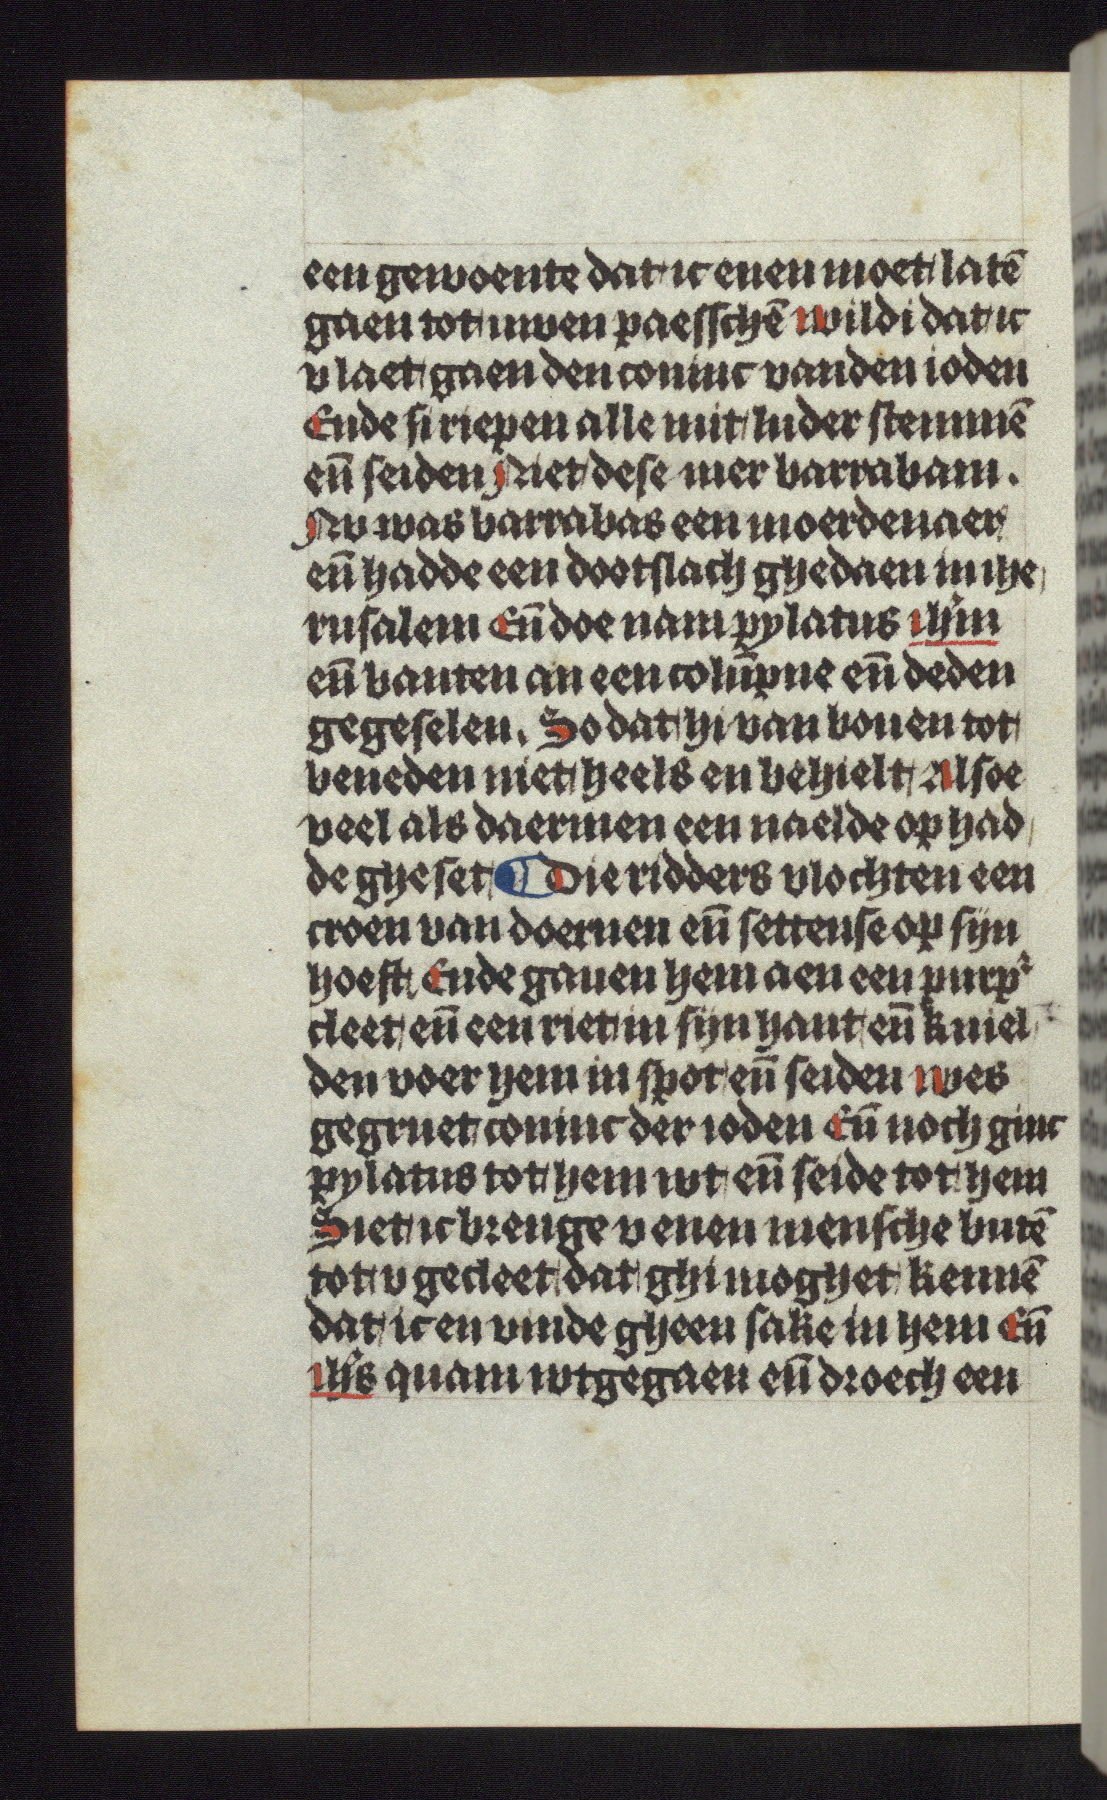 een gewoente dat ic enen moet latē
gaen tot uwen paesschē wildi dat ic
v laet gaen den coninc vanden ioden
Ende si riepen alle mit luder stemmē
en̄ seiden Niet dese mer barrabam.
Nv was barrabas een moerdenaer
en̄ hadde een dootslach ghedaen in ihe
rusalem En̄ doe nam pylatus ihm̄
en̄ banten an een colūpne en̄ deden
gegeselen. So dat hi van bouen tot
beneden niet heels en behielt Alsoe
veel als daermen een naelde op had
de gheset ¶ Die ridders vlochten een
croen van doernen en̄ settense op sijn
hoeft Ende gauen hem aen een purpʳ
cleet en̄ een riet in sijn hant en̄ kniel
den voer hem in spot en̄ seiden wes
gegruet coninc der ioden En̄ noch ginc
pylatus tot hem wt en̄ seide tot hem
Siet ic brenge v enen mensche butē
tot v gecleet dat ghi moghet kennē
dat ic en vinde gheen sake in hem En̄
ihs̄ quam wtgegaen en̄ droech een